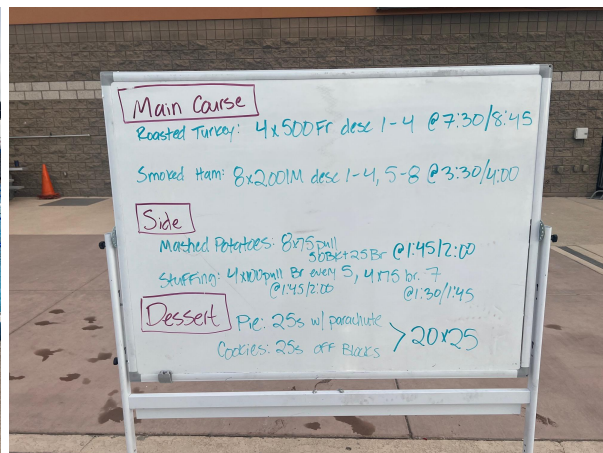 Main Course
Roasted Turkey: 4x500Fr desc 1-4 @7:30/8:45
Smoked Ham: 8x200IM desc 1-4, 5-8 @3:30/4:00
Side
Mashed Potatoes: 8x75 pull
50Bk+25Br @1:45/2:00
Stuffing: 4x100pull Br every 5, 4x75 br. 7
@1:45/2:00 @1:30/1:45
Dessert
Pie: 25s w/ parachute
Cookies: 25s off Blocks > 20x25